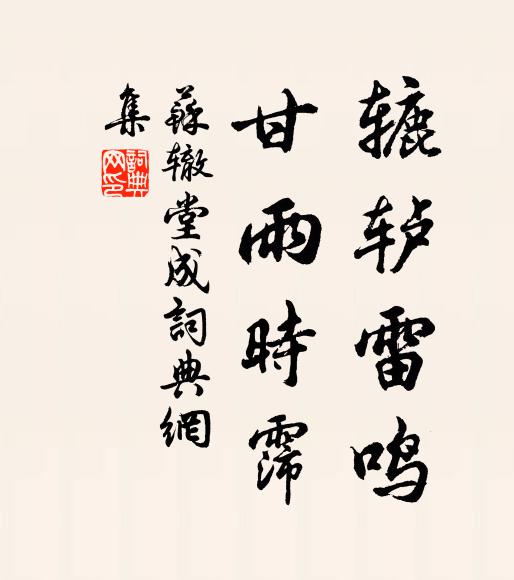 辘轳雷鸣
甘雨時霈
蘇辙堂成詞典網
集
詞典
网印